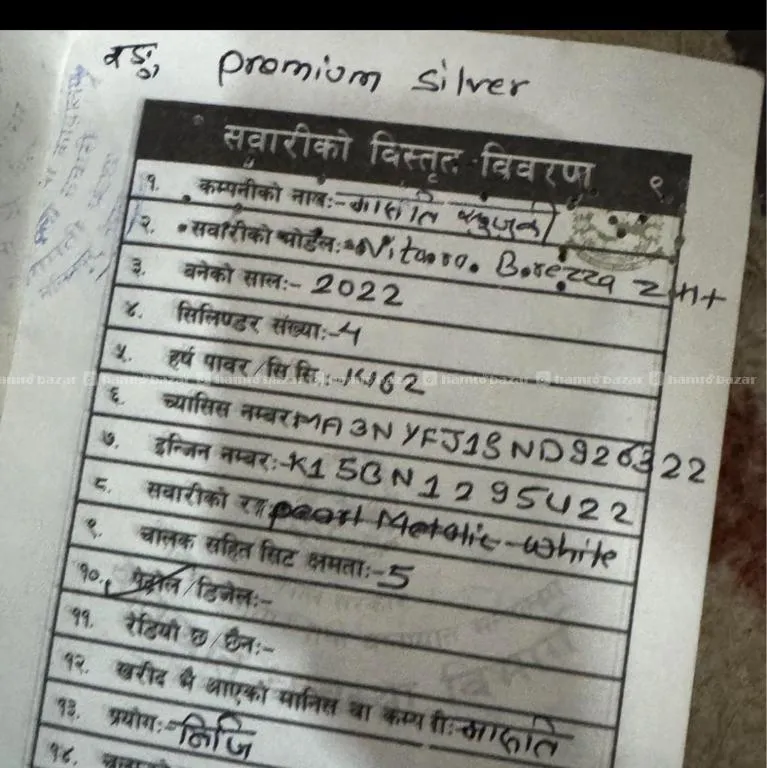 Premium Silver
सवारीको विस्तृत विवरण १
१. कम्पनीको नाम:- मारुति सुजुकी
२. सवारीको मोडेल:- Vitara Brezza ZXI+
३. बनेको साल:- 2022
४. सिलिण्डर संख्या:- 4
५. हर्ष पावर/सि सि:- 1462
६. च्यासिस नम्बर MA3NYFJ1SND926322
७. इन्जिन नम्बर:- K15BN1295422
८. सवारीको रङ्ग pearl Metalic-White
९. चालक सहित सिट क्षमता:- 5
१०. पेट्रोल/डिजेल:-
११. रेडियो छ/छैन:-
१२. खरीद भै आएको मानिस वा कम्पनी: मारुति
१३. प्रयोग:- निजि
१४.
hamro bazar hamro bazar hamro bazar hamro bazar hamro bazar